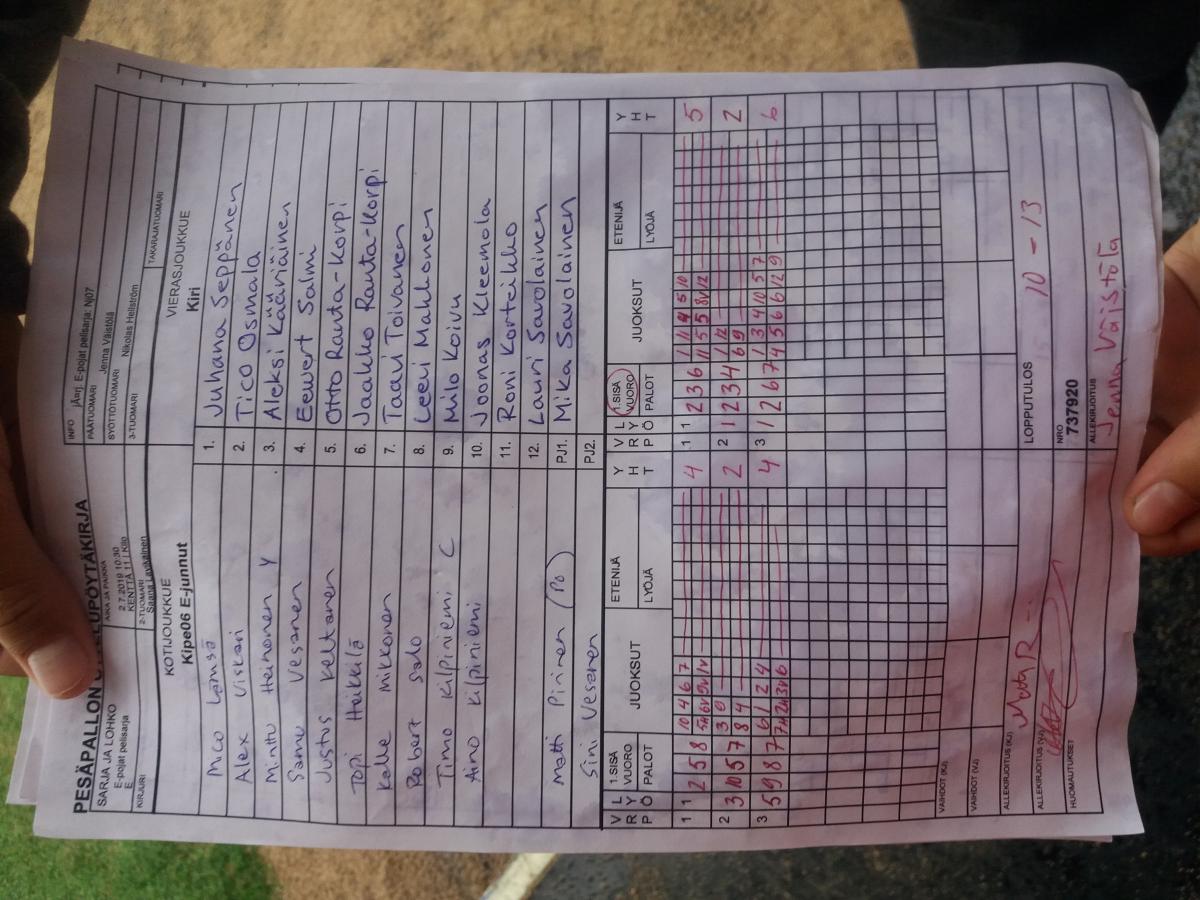 PESÄPALLON OTTELUPÖYTÄKIRJA
SARJA JA LOHKO
E-pojat pelisarja
E
AIKA JA PAIKKA
2.7.2019 10:30
KENTTÄ 11 / Kilo
INFO jÄrj. E-pojat pelisarja: Nj07
PÄÄTUOMARI Jenna Väistölä
SYÖTTÖTUOMARI
KIRJURI
2-TUOMARI
3-TUOMARI Nikolas Hellström
TAKARAJATUOMARI
KOTIJOUKKUE
Kipe06 E-junnut
VIERASJOUKKUE
Kiri
Mico 1. Juhana Seppänen
Alex Viskari 2. Tico Osmala
Minttu Heinonen Y 3. Aleksi Kääriäinen
Samu Vesanen 4. Eewert Salmi
Justus Keltanen 5. Otto Rauta-Korpi
Topi Heikkilä 6. Jaakko Rauta-Korpi
Kalle Mikkonen 7. Taavi Toivanen
Robert Salo 8. Leevi Mahkonen
Timo Kilpiniemi C 9. Milo Koivu
Aino Kilpiniemi 10. Joonas Kleemola
11. Roni Korteikko
12. Lauri Savolainen
Matti Pirinen (PO) PJ1. Mika Savolainen
Sini Vesanen PJ2.
V L
R Y
P Ö
1.SISÄ
VUORO
PALOT
JUOKSUT
ETENIJÄ
LYÖJÄ
Y
H
T
V L
R Y
P Ö
1.SISÄ
VUORO
PALOT
JUOKSUT
ETENIJÄ
LYÖJÄ
Y
H
T
1 2 5 8 10 4 6 7 4
2 3 10 5 7 3 9 2
8 4
3 5 9 8 7 6 1 2 4 4
1 1 2 3 6 1 11 4 5 10 5
2 1 2 3 4 1 12 2
6 9
3 1 2 6 7 1 3 4 10 5 7 6
4 5 6 6 12 9
VAIHDOT (KJ)
VAIHDOT (VJ)
ALLEKIRJOITUS (KJ)
ALLEKIRJOITUS (VJ)
HUOMAUTUKSET
LOPPUTULOS 10 - 13
NRO
737920
ALLEKIRJOITUS
Jenna Väistölä